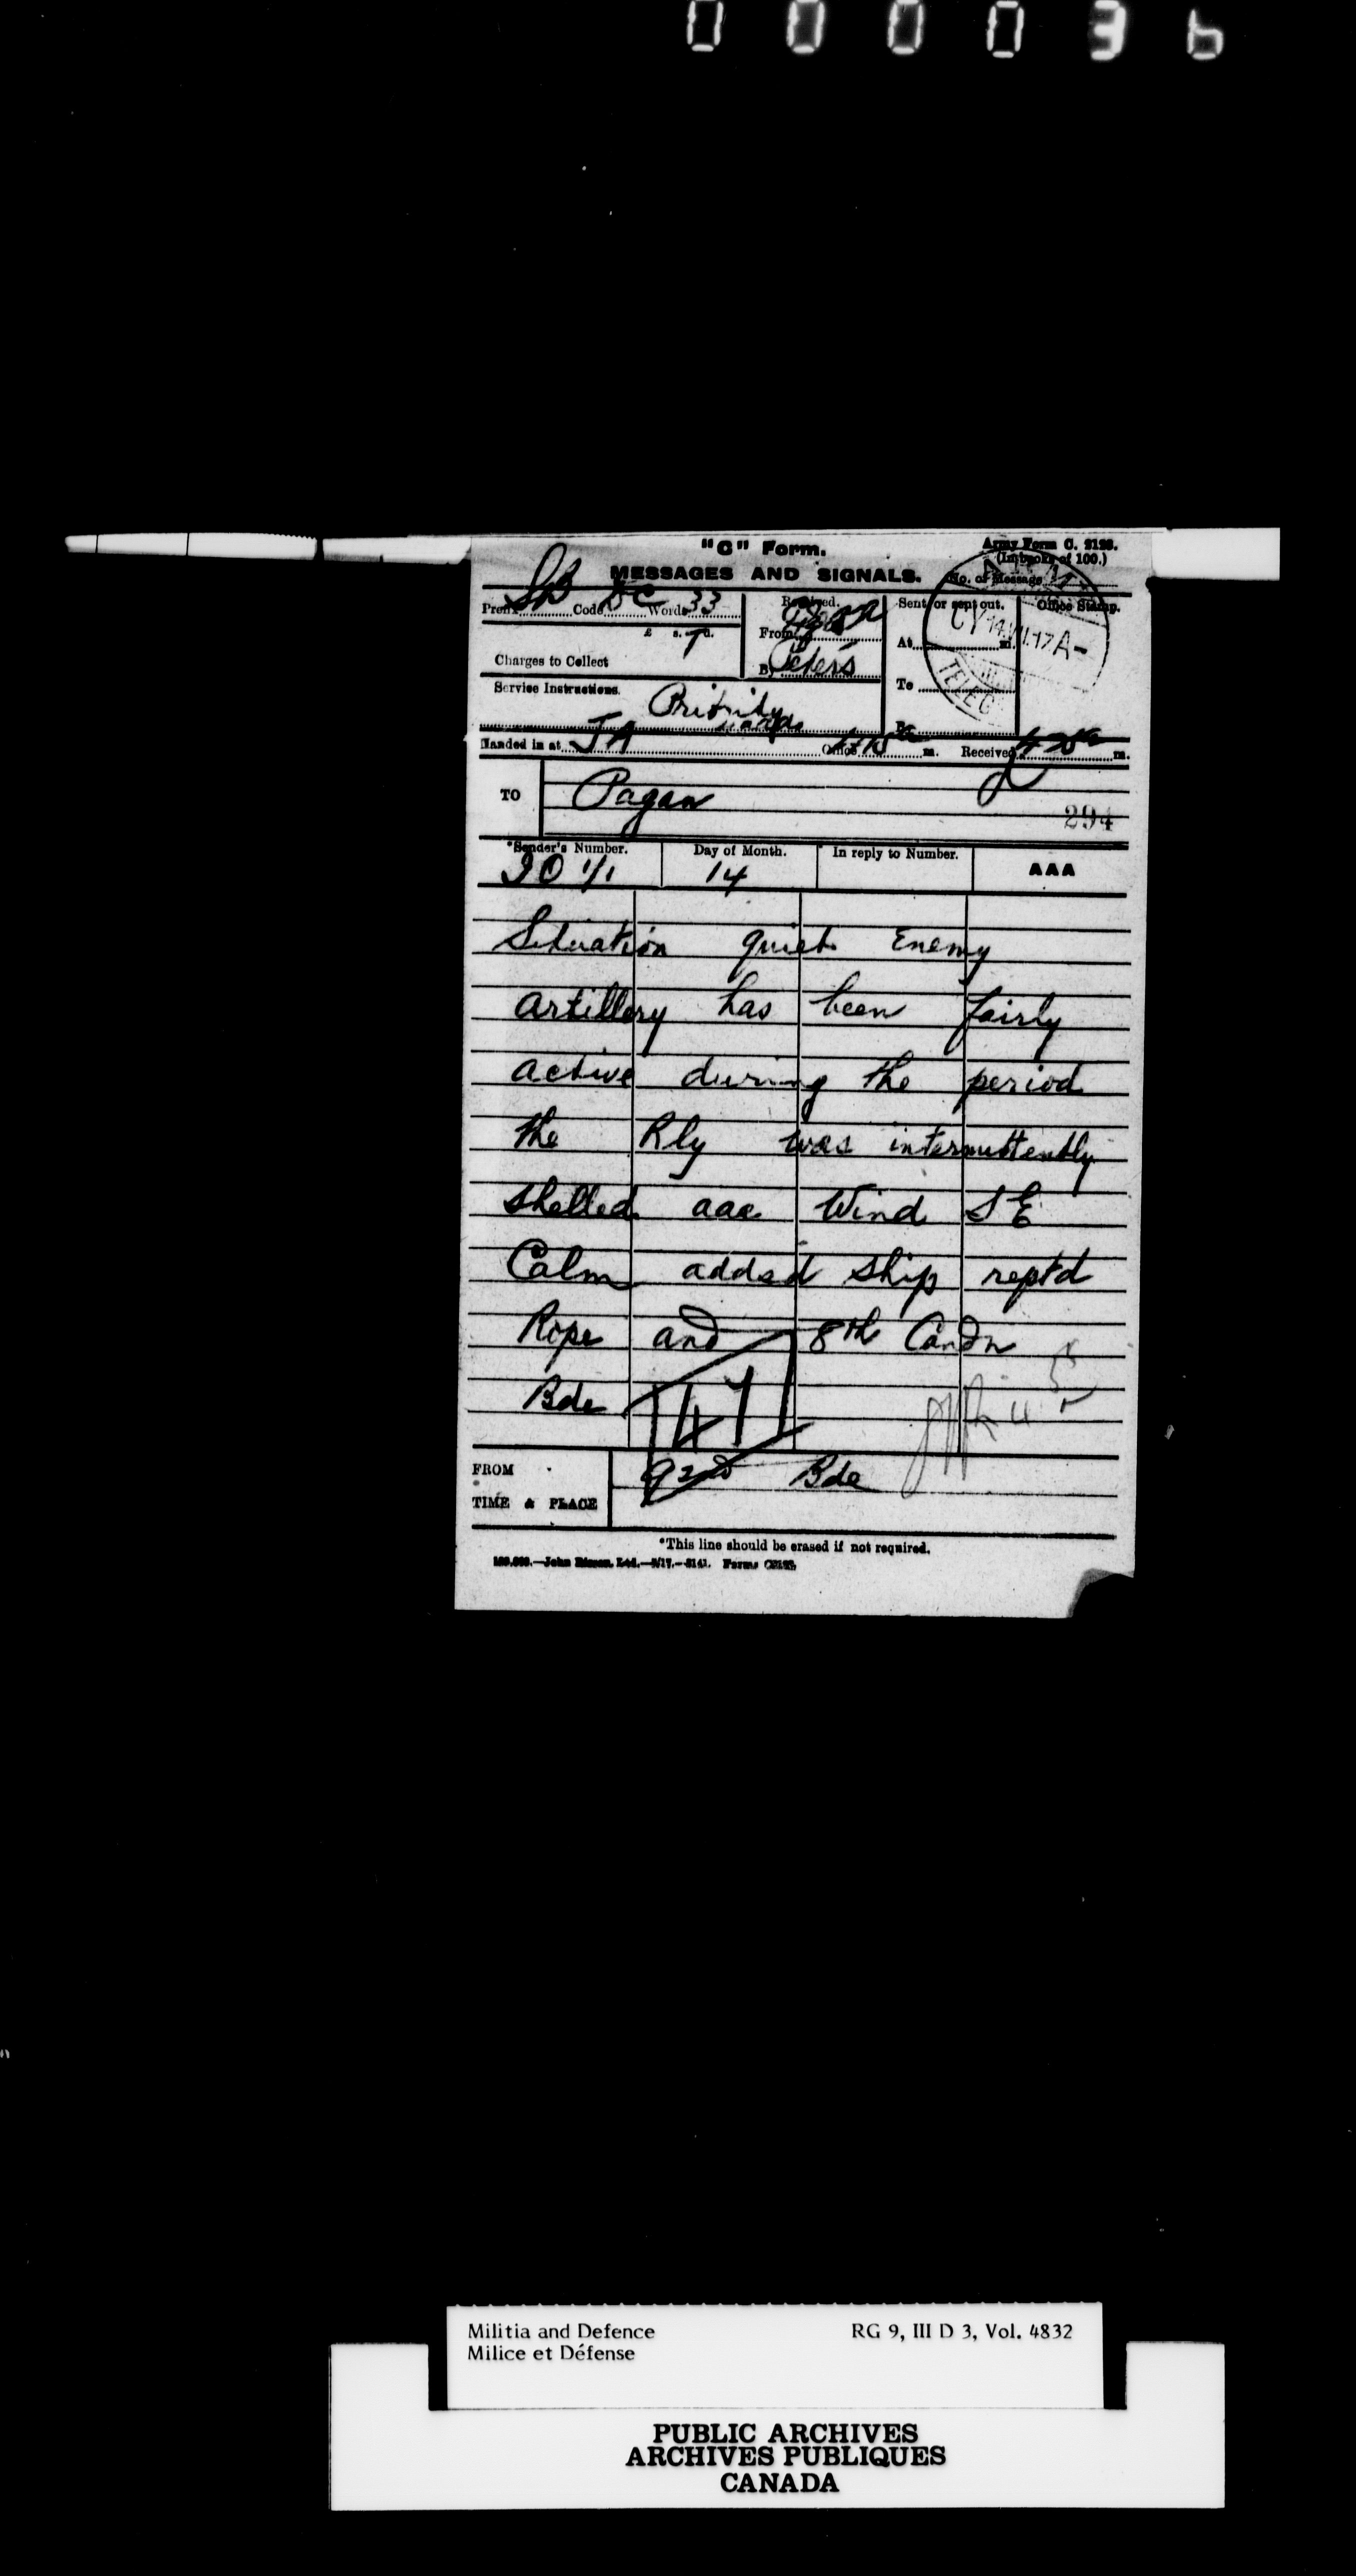 000036
"C" Form.
Army Form C. 2128.
(In books of 100.)
MESSAGES AND SIGNALS.
No. of Message
Prefix SB Code Words 33
Received.
Sent, or sent out.
Office Stamp.
£ s. d.
From
At m.
CY 14.VII.17 A-
TELEG
Charges to Collect
By Peters
To
Service Instructions.
Priority
By
Handed in at JA Office m. Received m.
TO Pagan
294
*Sender's Number.
Day of Month.
In reply to Number.
AAA
14
Situation quiet Enemy
artillery has been fairly
active during the period
the Rly was intermittently
shelled aaa Wind SE
Calm added ship reptd
Rope and 8th Candn
Bde
147
FROM 92nd Bde
TIME & PLACE
*This line should be erased if not required.
Militia and Defence
RG 9, III D 3, Vol. 4832
Milice et Défense
PUBLIC ARCHIVES
ARCHIVES PUBLIQUES
CANADA